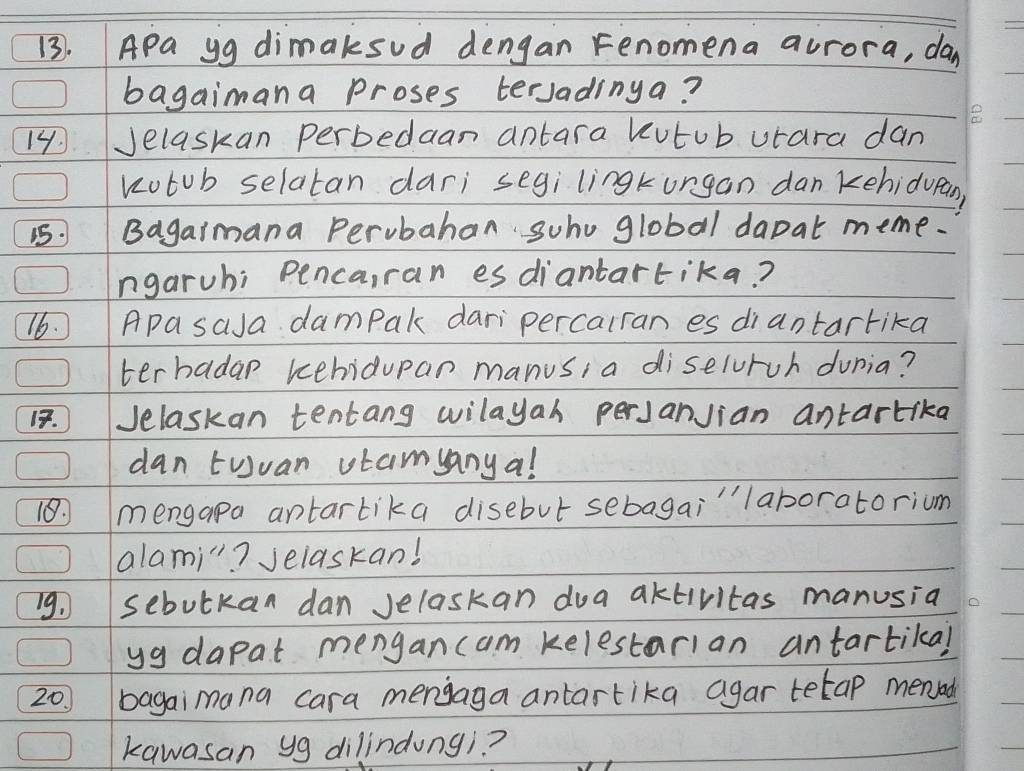 13. Apa yg dimaksud dengan Fenomena aurora, dan
bagaimana proses terjadinya?
14. Jelaskan perbedaan antara kutub utara dan
kutub selatan dari segi lingkungan dan kehidupan!
15. Bagaimana perubahan suhu global dapat meme-
ngaruhi pencairan es diantartika?
16. Apa saja dampak dari percairan es di antartika
terhadap kehidupan manusia diseluruh dunia?
17. Jelaskan tentang wilayah perjanjian antartika
dan tujuan utamyanya!
18. mengapa antartika disebut sebagai "laboratorium
alami"? jelaskan!
19. sebutkan dan jelaskan dua aktivitas manusia
yg dapat mengancam kelestarian antartika!
20. bagaimana cara menjaga antartika agar tetap menjadi
kawasan yg dilindungi?